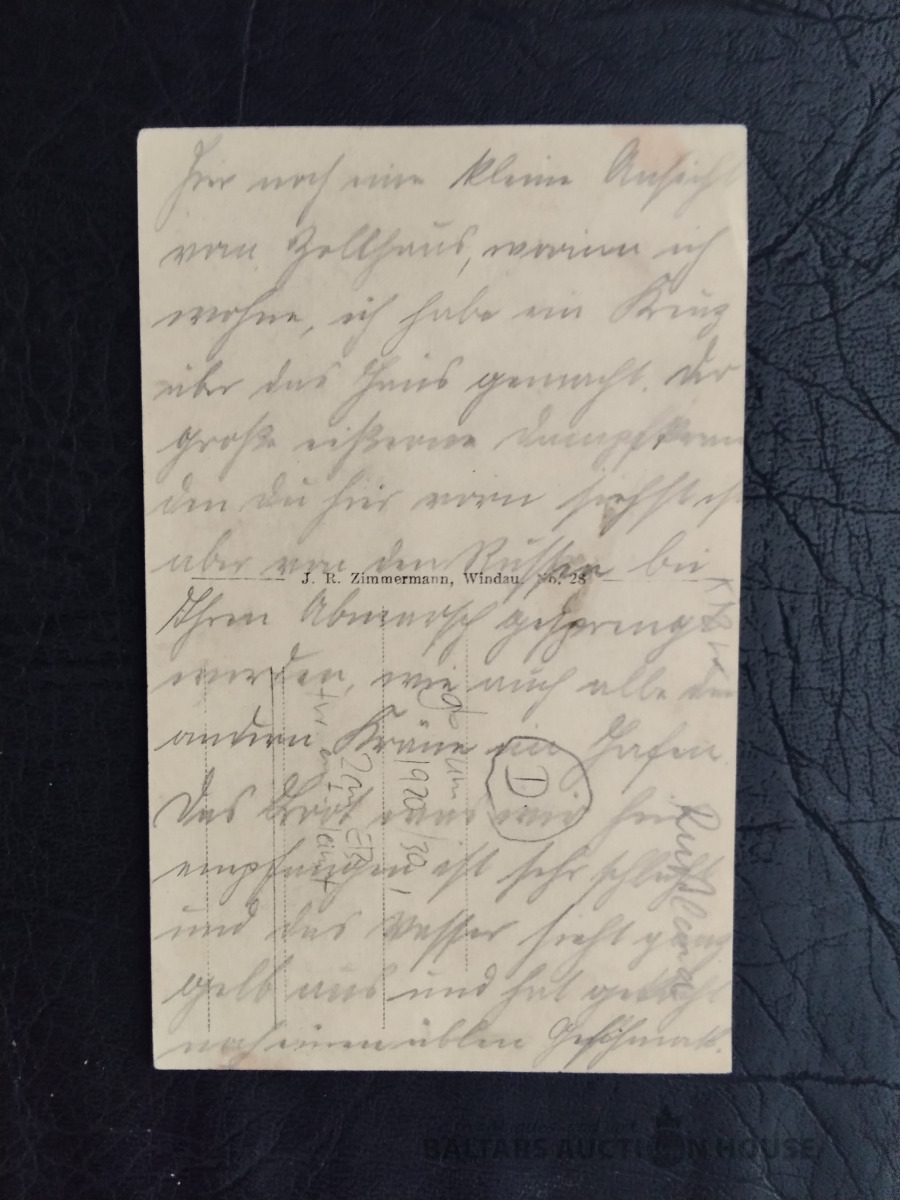 Hier noch eine kleine Ansicht
vom Zollhaus, worinn ich
wohne, ich habe ein Kreuz
über das Haus gemacht. Der
große eißerne Dampfkran
den du hier vorn siehst ist
aber von den Russen bei
J. R. Zimmermann, Windau. No. 28
Ihren Abmarsch gesprengt
worden, wie auch alle
andern Kräne im Hafen.
D
Das Brot was wir hier
empfangen ist sehr schlecht
und das Wasser sieht ganz
gelb aus und hat
noch einen üblen Geschmack.
Rußland
um
1920/30,
BALTARS AUCTION HOUSE